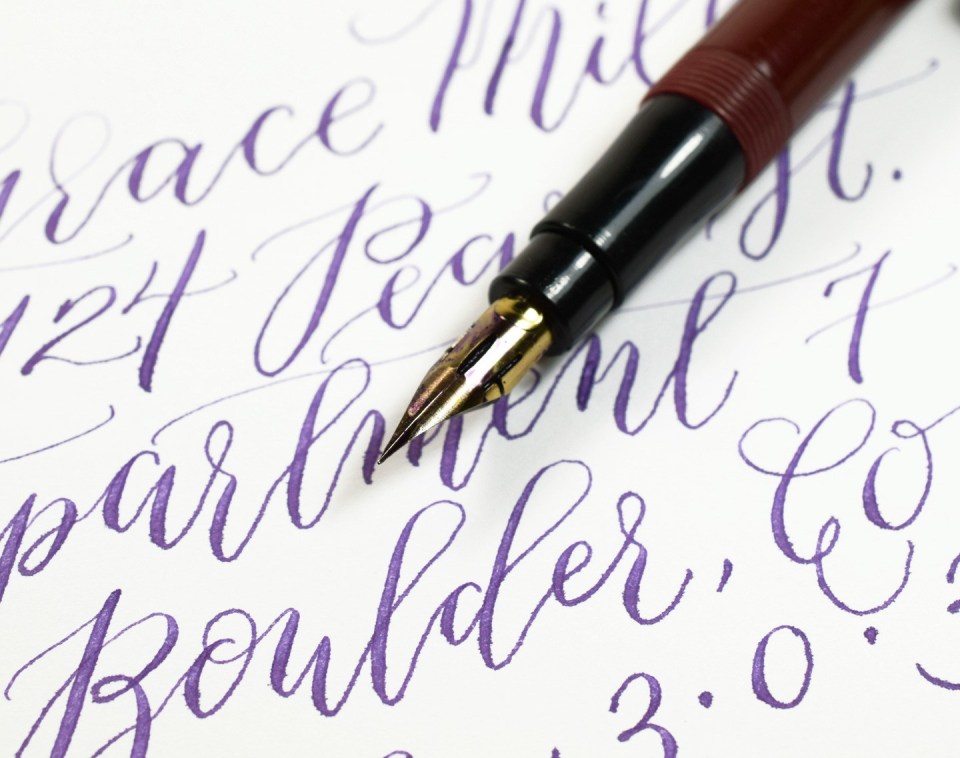 Grace Mill
124 Pearl St.
partment 7
Boulder, CO
3 · 0 ·